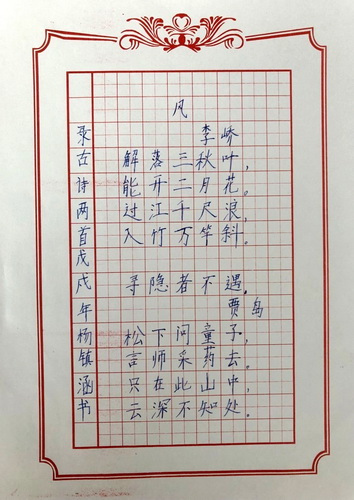 风
李峤
解落三秋叶，
能开二月花。
过江千尺浪，
入竹万竿斜。
寻隐者不遇。
贾岛
松下问童子，
言师采药去。
只在此山中，
云深不知处。
录古诗两首戊戌年杨镇涵书